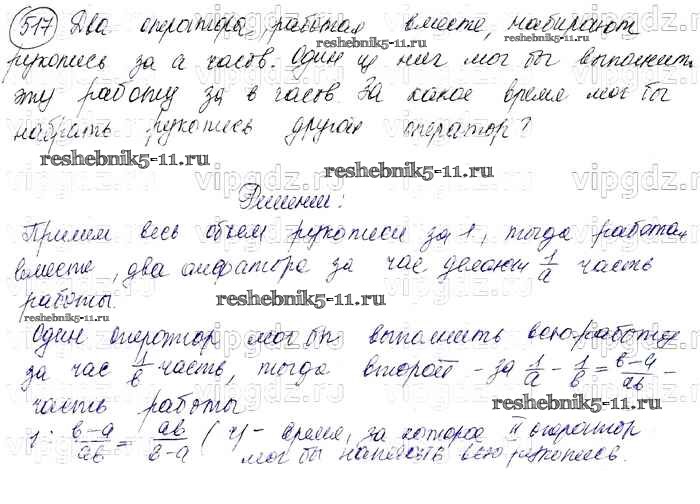 517 Два оператора, работая вместе, набирают
рукопись за a часов. Один из них мог бы выполнить
эту работу за в часов. За какое время мог бы
набрать рукопись другой оператор?
reshebnik5-11.ru
Решение:
Примем весь объем рукописи за 1, тогда работая
вместе, два оператора за час делают 1/a часть
работы.
Один оператор мог бы выполнить всю работу
за час 1/в часть, тогда второй - за 1/a - 1/в = в-a/aв -
часть работы
1 : в-a/aв = aв/в-a (ч) - время, за которое II оператор
мог бы написать всю рукопись.